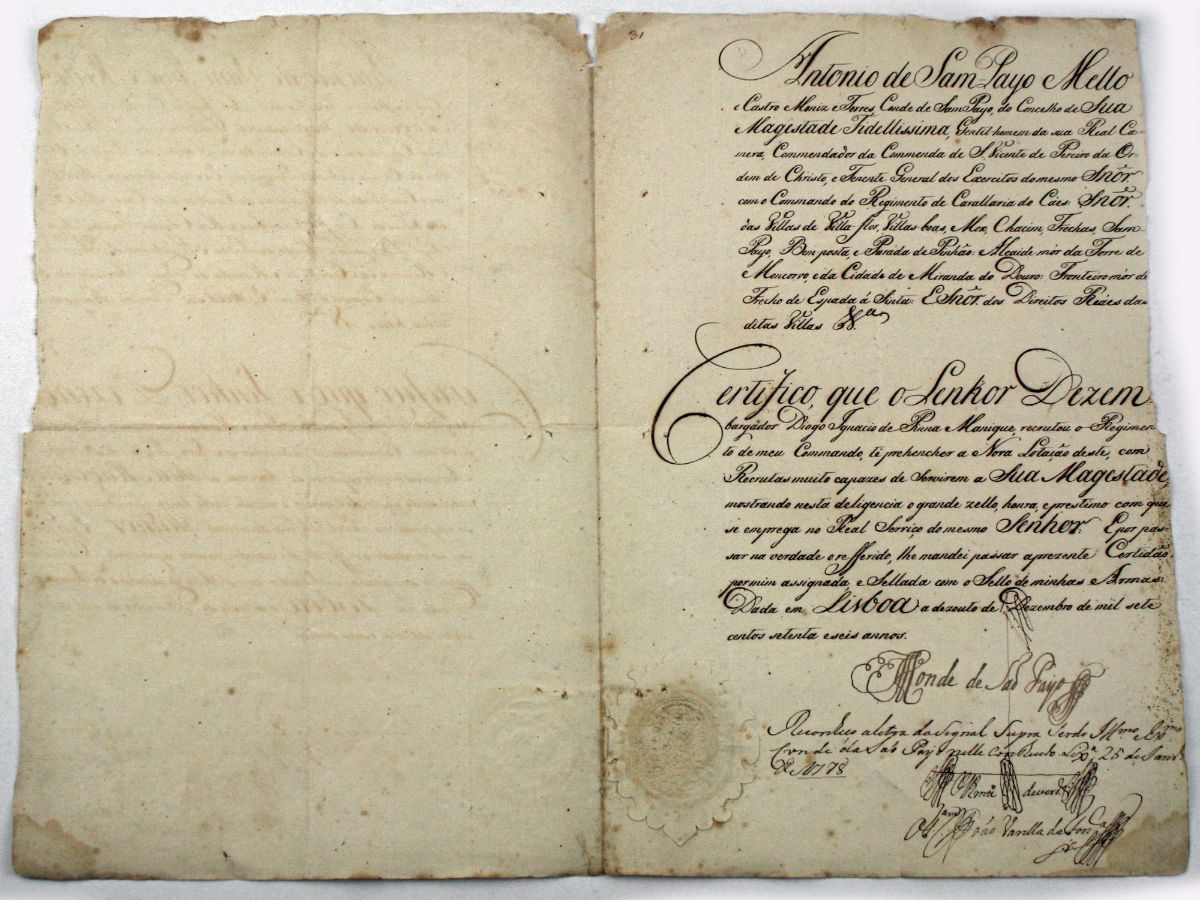 31
Antonio de Sam Payo Mello
e Castro Moniz e Torres, Conde de Sam Payo, do Concelho de Sua
Magestade Fidellissima, Gentil-homem da sua Real Ca-
mera, Commendador da Commenda de S. Vicente de Pereiro da Or-
dem de Christo, e Tenente General dos Exercitos do mesmo Snõr
com o Commando do Regimento de Cavallaria do Cáes: Snõr.
das Villas de Villa-flor, Villas-boas, Moz, Chacim, Frechas, Sam-
Payo, Bemposta, e Parada de Pinhão: e Alcaide mór da Torre de
Moncorvo, e da Cidade de Miranda do Douro: Fronteiro mór de
Frecho de Espada á Sinta: E Snõr dos Direitos Reáes da-
ditas Villas &.ª
Certifico, que o Senhor Dezem-
bargador Diogo Ignacio de Pina Manique, recrutou o Regimen-
to de meu Commando, té prehencher a Nova Lotação deste, com
Recrutas muito capazes de Servirem a Sua Magestade,
mostrando nesta deligencia o grande zello, honra, e prestimo com que
se emprega no Real Serviço do mesmo Senhor: E por pas-
sar na verdade o refferido, lhe mandei passar a prezente Certidão
por mim assignada, e Sellada com o Sello de minhas Armas:
Dada em Lisboa a dezouto de Dezembro de mil sete
centos setenta e seis annos.
Conde de São Payo
Reconheco a letra do Signal Supra Ser do Illmo Exmo
Conde de Sao Payo nelle contheudo Lxª 25 de Janrº
de 1778
de verd.e
João Varella da Fonca